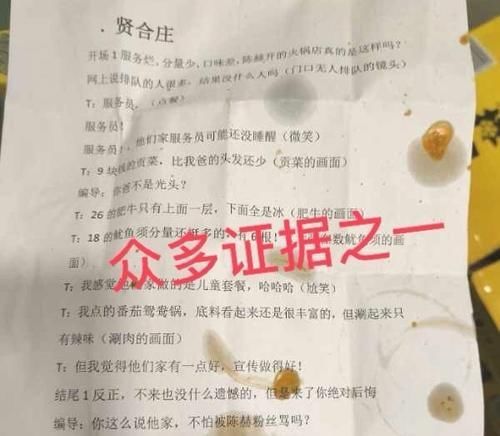 . 贤合庄
开场 1 服务烂，分量少，口味差，陈赫开的火锅店真的是这样吗？
网上说排队的人很多，结果没什么人吗（门口无人排队的镜头）
T：服务员，（点餐）
服务员！
服务员！他们家服务员可能还没睡醒（微笑）
T：9 块钱的贡菜，比我爸的头发还少（贡菜的画面）
编导：你爸不是光头？
T：26 的肥牛只有上面一层，下面全是冰（肥牛的画面）
T：18 的鱿鱼须分量还挺多的，有 6 根！ 数鱿鱼须的画
面）
众多证据之一
T：我感觉他们家做的是儿童套餐，哈哈哈（尬笑）
T：我点的番茄鸳鸯锅，底料看起来还是很丰富的，但涮起来只
有辣味（涮肉的画面）
T：但我觉得他们家有一点好，宣传做得好！
结尾 1 反正，不来也没什么遗憾的，但是来了你绝对后悔
编导：你这么说他家，不怕被陈赫粉丝骂吗？